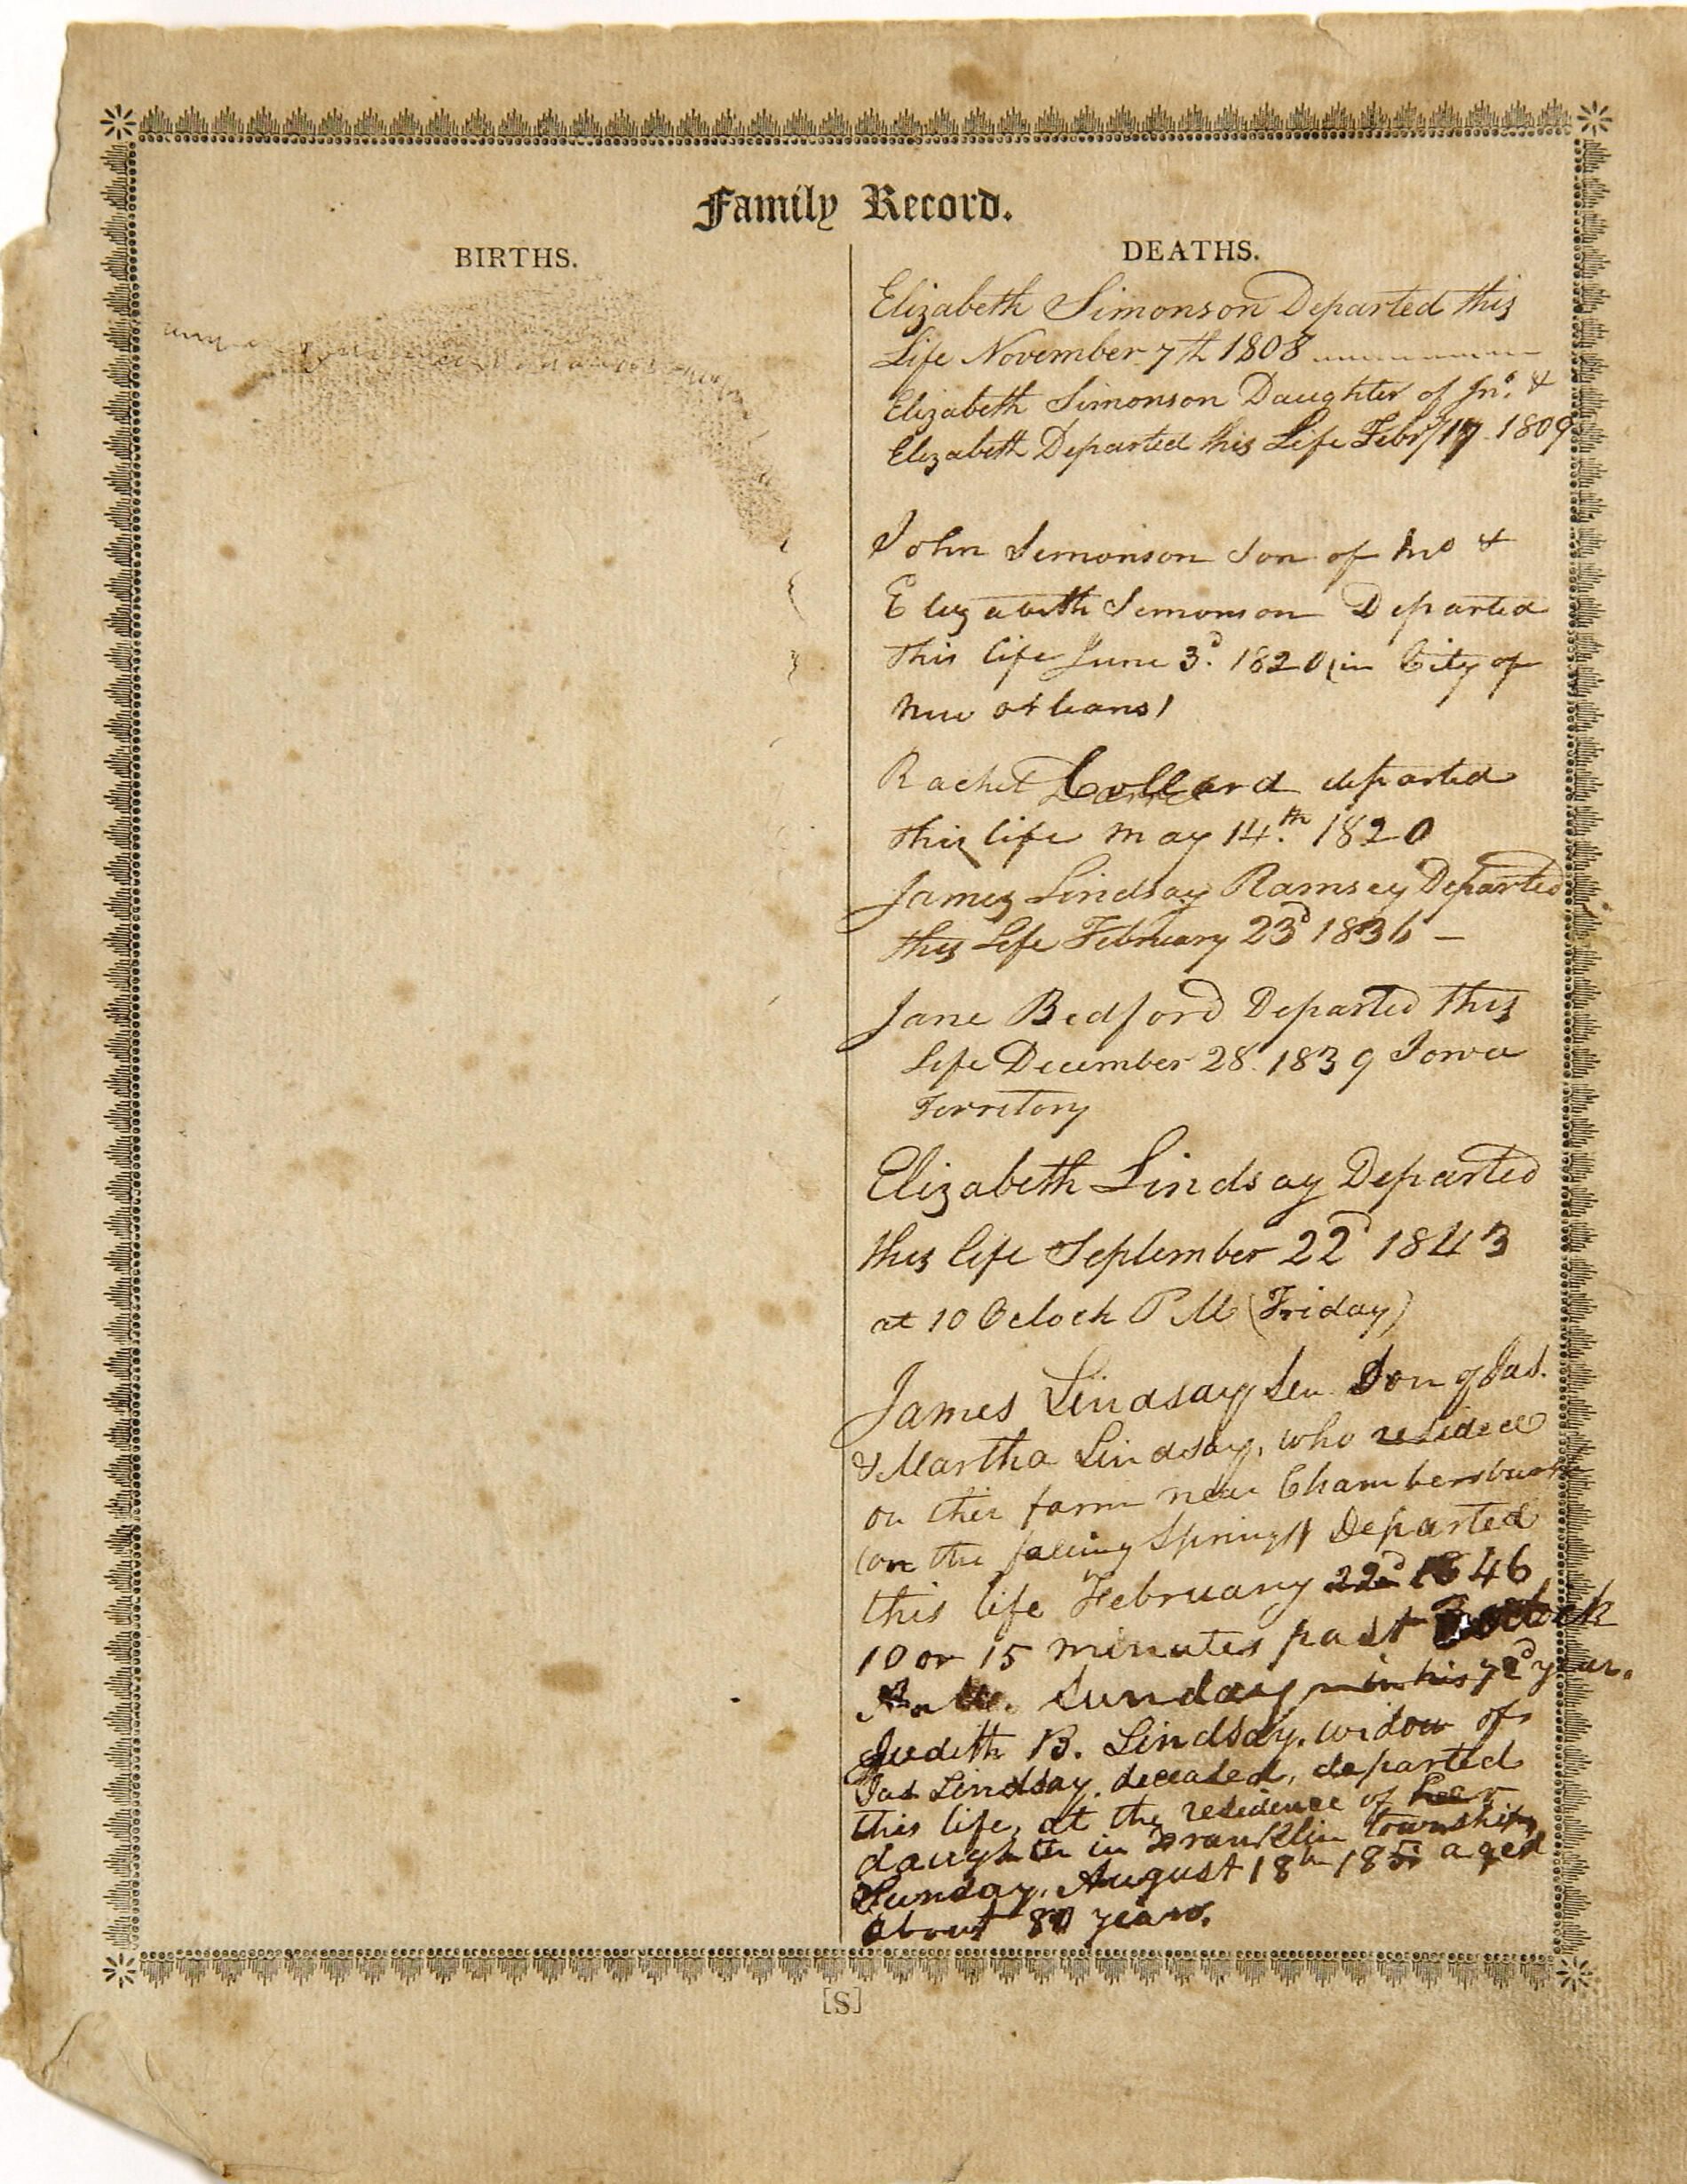 Family Record.
BIRTHS.
DEATHS.
Elizabeth Simonson Departed this
Life November 7th 1808
Elizabeth Simonson Daughter of Jno. &
Elizabeth Departed this Life Febry 17 1809
John Simonson Son of Jno &
Elizabeth Simonson Departed
this life June 3d. 1820 (in City of
New orleans)
Rachel Collard departed
this life may 14.th 1820
James Lindsay Ramsey Departed
this Life February 23d 1836 —
Jane Bedford Departed this
Life December 28. 1839 Iowa
Territory
Elizabeth Lindsay Departed
this life September 22d 1843
at 10 Oclock P.M (Friday)
James Lindsay Sen. Son of Jas.
& Martha Lindsay, who resided
on their farm near Chambersburg
(on the faling Spring) Departed
this life February 22d 1846
10 or 15 minutes past oclock
Sunday in his 72d year.
Judith B. Lindsay, widow of
Jas Lindsay, deceased, departed
this life, at the residence of her
daughter in Franklin township,
Sunday, August 18th aged
about years.
[S]